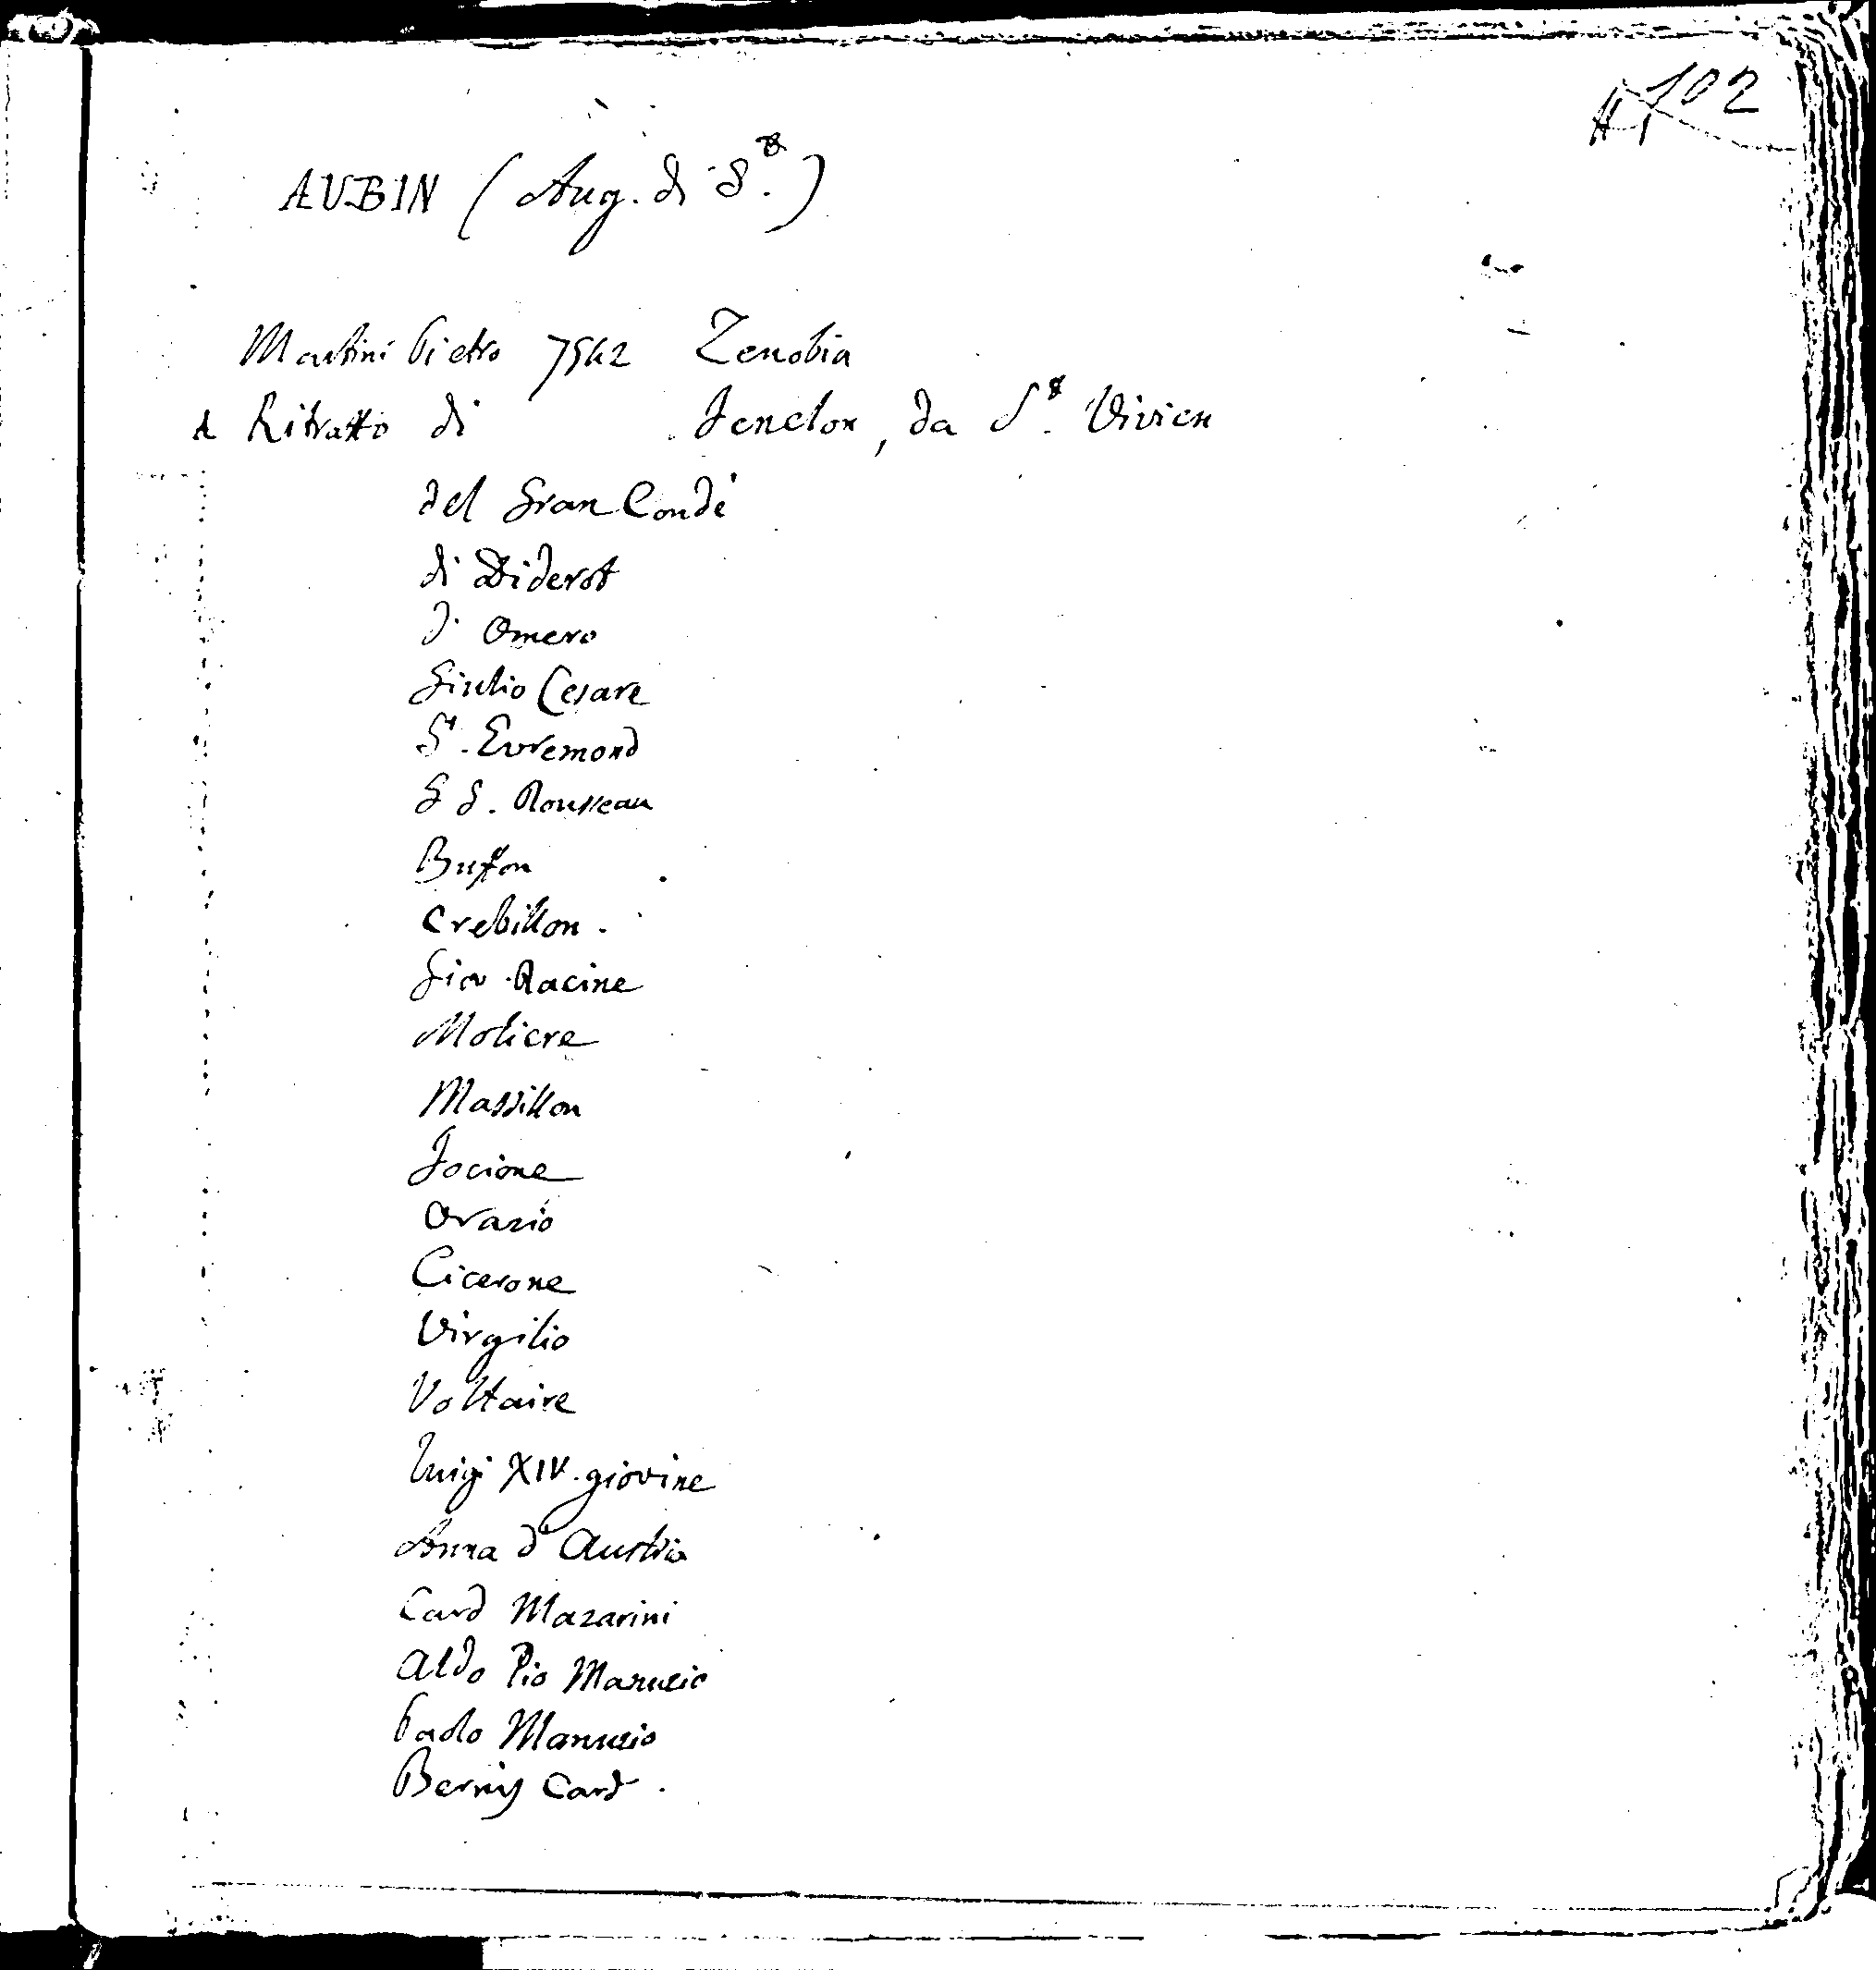 102
AUBIN (Aug. di S.t)
Martini Pietro 7542 Zenobia
A Ritratto di Fenelon, da S.t Vivien
del Gran Condé
di Diderot
d' Omero
Giulio Cesare
St. Evremond
G G. Rousseau
Buffon
Crebillon.
Giov. Racine
Moliere
Massillon
Focione
Orazio
Cicerone
Virgilio
Voltaire
Luigi XIV. giovine
Anna d'Austria
Card Mazarini
Aldo Pio Manuzio
Paolo Manuzio
Bernis Card.